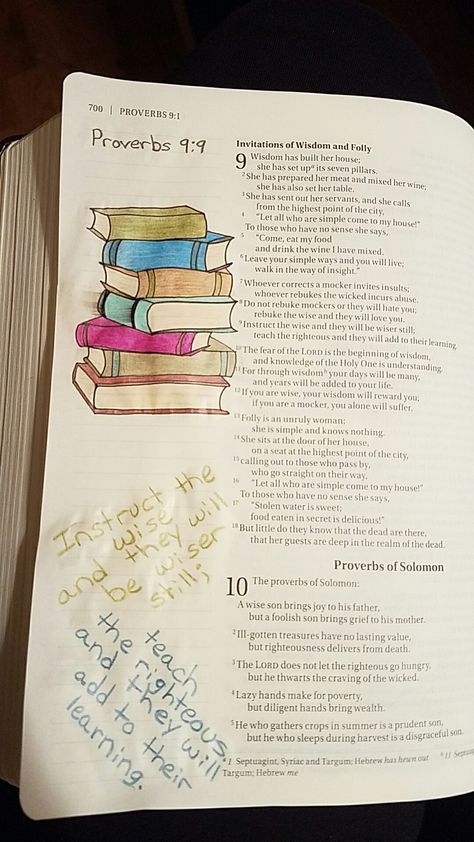 700 | PROVERBS 9:1
Proverbs 9:9
Invitations of Wisdom and Folly
9 Wisdom has built her house;
she has set upᵃ its seven pillars.
²She has prepared her meat and mixed her wine;
she has also set her table.
³She has sent out her servants, and she calls
from the highest point of the city,
⁴ "Let all who are simple come to my house!"
To those who have no sense she says,
⁵ "Come, eat my food
and drink the wine I have mixed.
⁶Leave your simple ways and you will live;
walk in the way of insight."
⁷Whoever corrects a mocker invites insults;
whoever rebukes the wicked incurs abuse.
⁸Do not rebuke mockers or they will hate you;
rebuke the wise and they will love you.
⁹Instruct the wise and they will be wiser still;
teach the righteous and they will add to their learning.
¹⁰The fear of the LORD is the beginning of wisdom,
and knowledge of the Holy One is understanding.
¹¹For through wisdomᵇ your days will be many,
and years will be added to your life.
¹²If you are wise, your wisdom will reward you;
if you are a mocker, you alone will suffer.
¹³Folly is an unruly woman;
she is simple and knows nothing.
¹⁴She sits at the door of her house,
on a seat at the highest point of the city,
¹⁵calling out to those who pass by,
who go straight on their way,
¹⁶ "Let all who are simple come to my house!"
To those who have no sense she says,
¹⁷ "Stolen water is sweet;
food eaten in secret is delicious!"
¹⁸But little do they know that the dead are there,
that her guests are deep in the realm of the dead.
Proverbs of Solomon
10 The proverbs of Solomon:
A wise son brings joy to his father,
but a foolish son brings grief to his mother.
²Ill-gotten treasures have no lasting value,
but righteousness delivers from death.
³The LORD does not let the righteous go hungry,
but he thwarts the craving of the wicked.
⁴Lazy hands make for poverty,
but diligent hands bring wealth.
⁵He who gathers crops in summer is a prudent son,
but he who sleeps during harvest is a disgraceful son.
ᵃ 1 Septuagint, Syriac and Targum; Hebrew has hewn out ᵇ 11
Targum; Hebrew me
Instruct the
wise
and they will
be wiser
still;
teach
the righteous
and they will
add to their
learning.